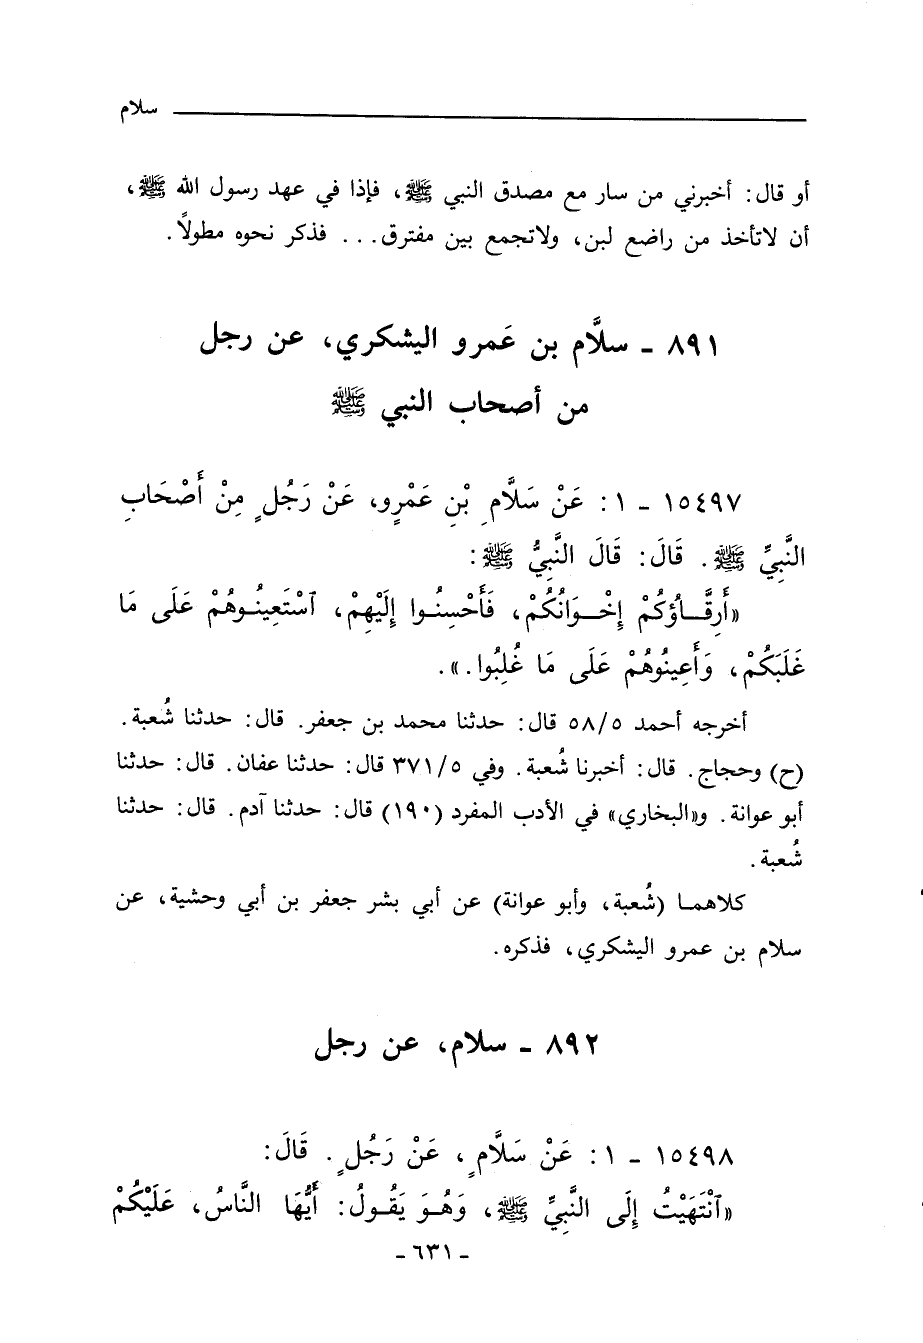 سلام
أو قال: أخبرني من سار مع مصدق النبي ﷺ، فإذا في عهد رسول الله ﷺ،
أن لاتأخذ من راضع لبن، ولاتجمع بين مفترق... فذكر نحوه مطولاً.
٨٩١ - سلَّام بن عَمرو اليشكري، عن رجل
من أصحاب النبي ﷺ
١٥٤٩٧ - ١: عَنْ سَلَّامِ بْنِ عَمْرٍو، عَنْ رَجُلٍ مِنْ أَصْحَابِ
النَّبِيِّ ﷺ. قَالَ: قَالَ النَّبِيُّ ﷺ:
«أَرِقَّـاؤُكُمْ إِخْـوَانُكُمْ، فَأَحْسِنُـوا إِلَيْهِمْ، ٱسْتَعِينُـوهُمْ عَلَى مَا
غَلَبَكُمْ، وَأَعِينُوهُمْ عَلَى مَا غُلِبُوا.».
أخرجه أحمد ٥/٥٨ قال: حدثنا محمد بن جعفر. قال: حدثنا شُعبة.
(ح) وحجاج. قال: أخبرنا شُعبة. وفي ٥/٣٧١ قال: حدثنا عفان. قال: حدثنا
أبو عوانة. و«البخاري» في الأدب المفرد (١٩٠) قال: حدثنا آدم. قال: حدثنا
شُعبة.
كلاهمـا (شُعبة، وأبو عوانة) عن أبي بشر جعفر بن أبي وحشية، عن
سلام بن عمرو اليشكري، فذكره.
٨٩٢ - سلام، عن رجل
١٥٤٩٨ - ١: عَنْ سَلَّامٍ، عَنْ رَجُلٍ. قَالَ:
«ٱنْتَهَيْتُ إِلَى النَّبِيِّ ﷺ، وَهُـوَ يَقُـولُ: أَيُّهَا النَّاسُ، عَلَيْكُمْ
- ٦٣١ -